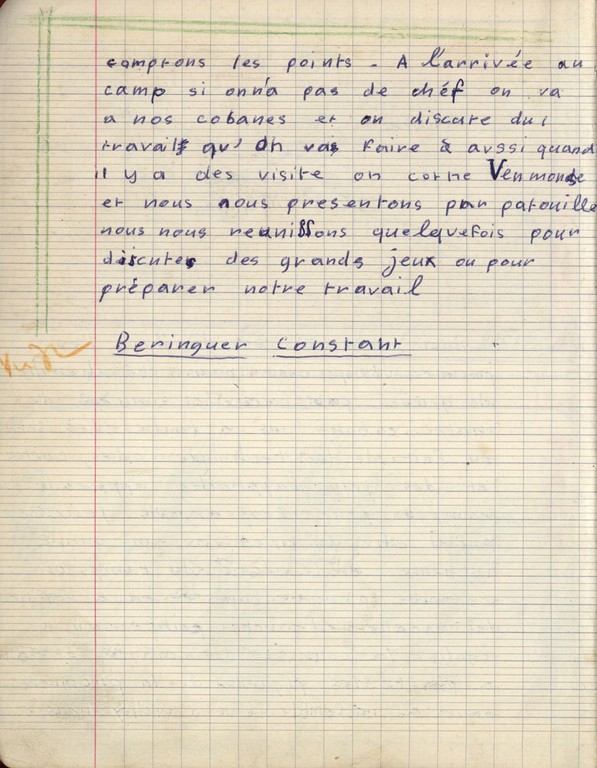 comptons les points - A l'arrivée au
camp si onn'a pas de chéf on va
a nos cobanes et on discute du
travail qu'on vas faire & aussi quand
il y a des visite on corne Venmonde
et nous nous presentons par patouille
nous nous reunissons quelquefois pour
discuter des grands jeux ou pour
préparer notre travail
Beringuer Constant